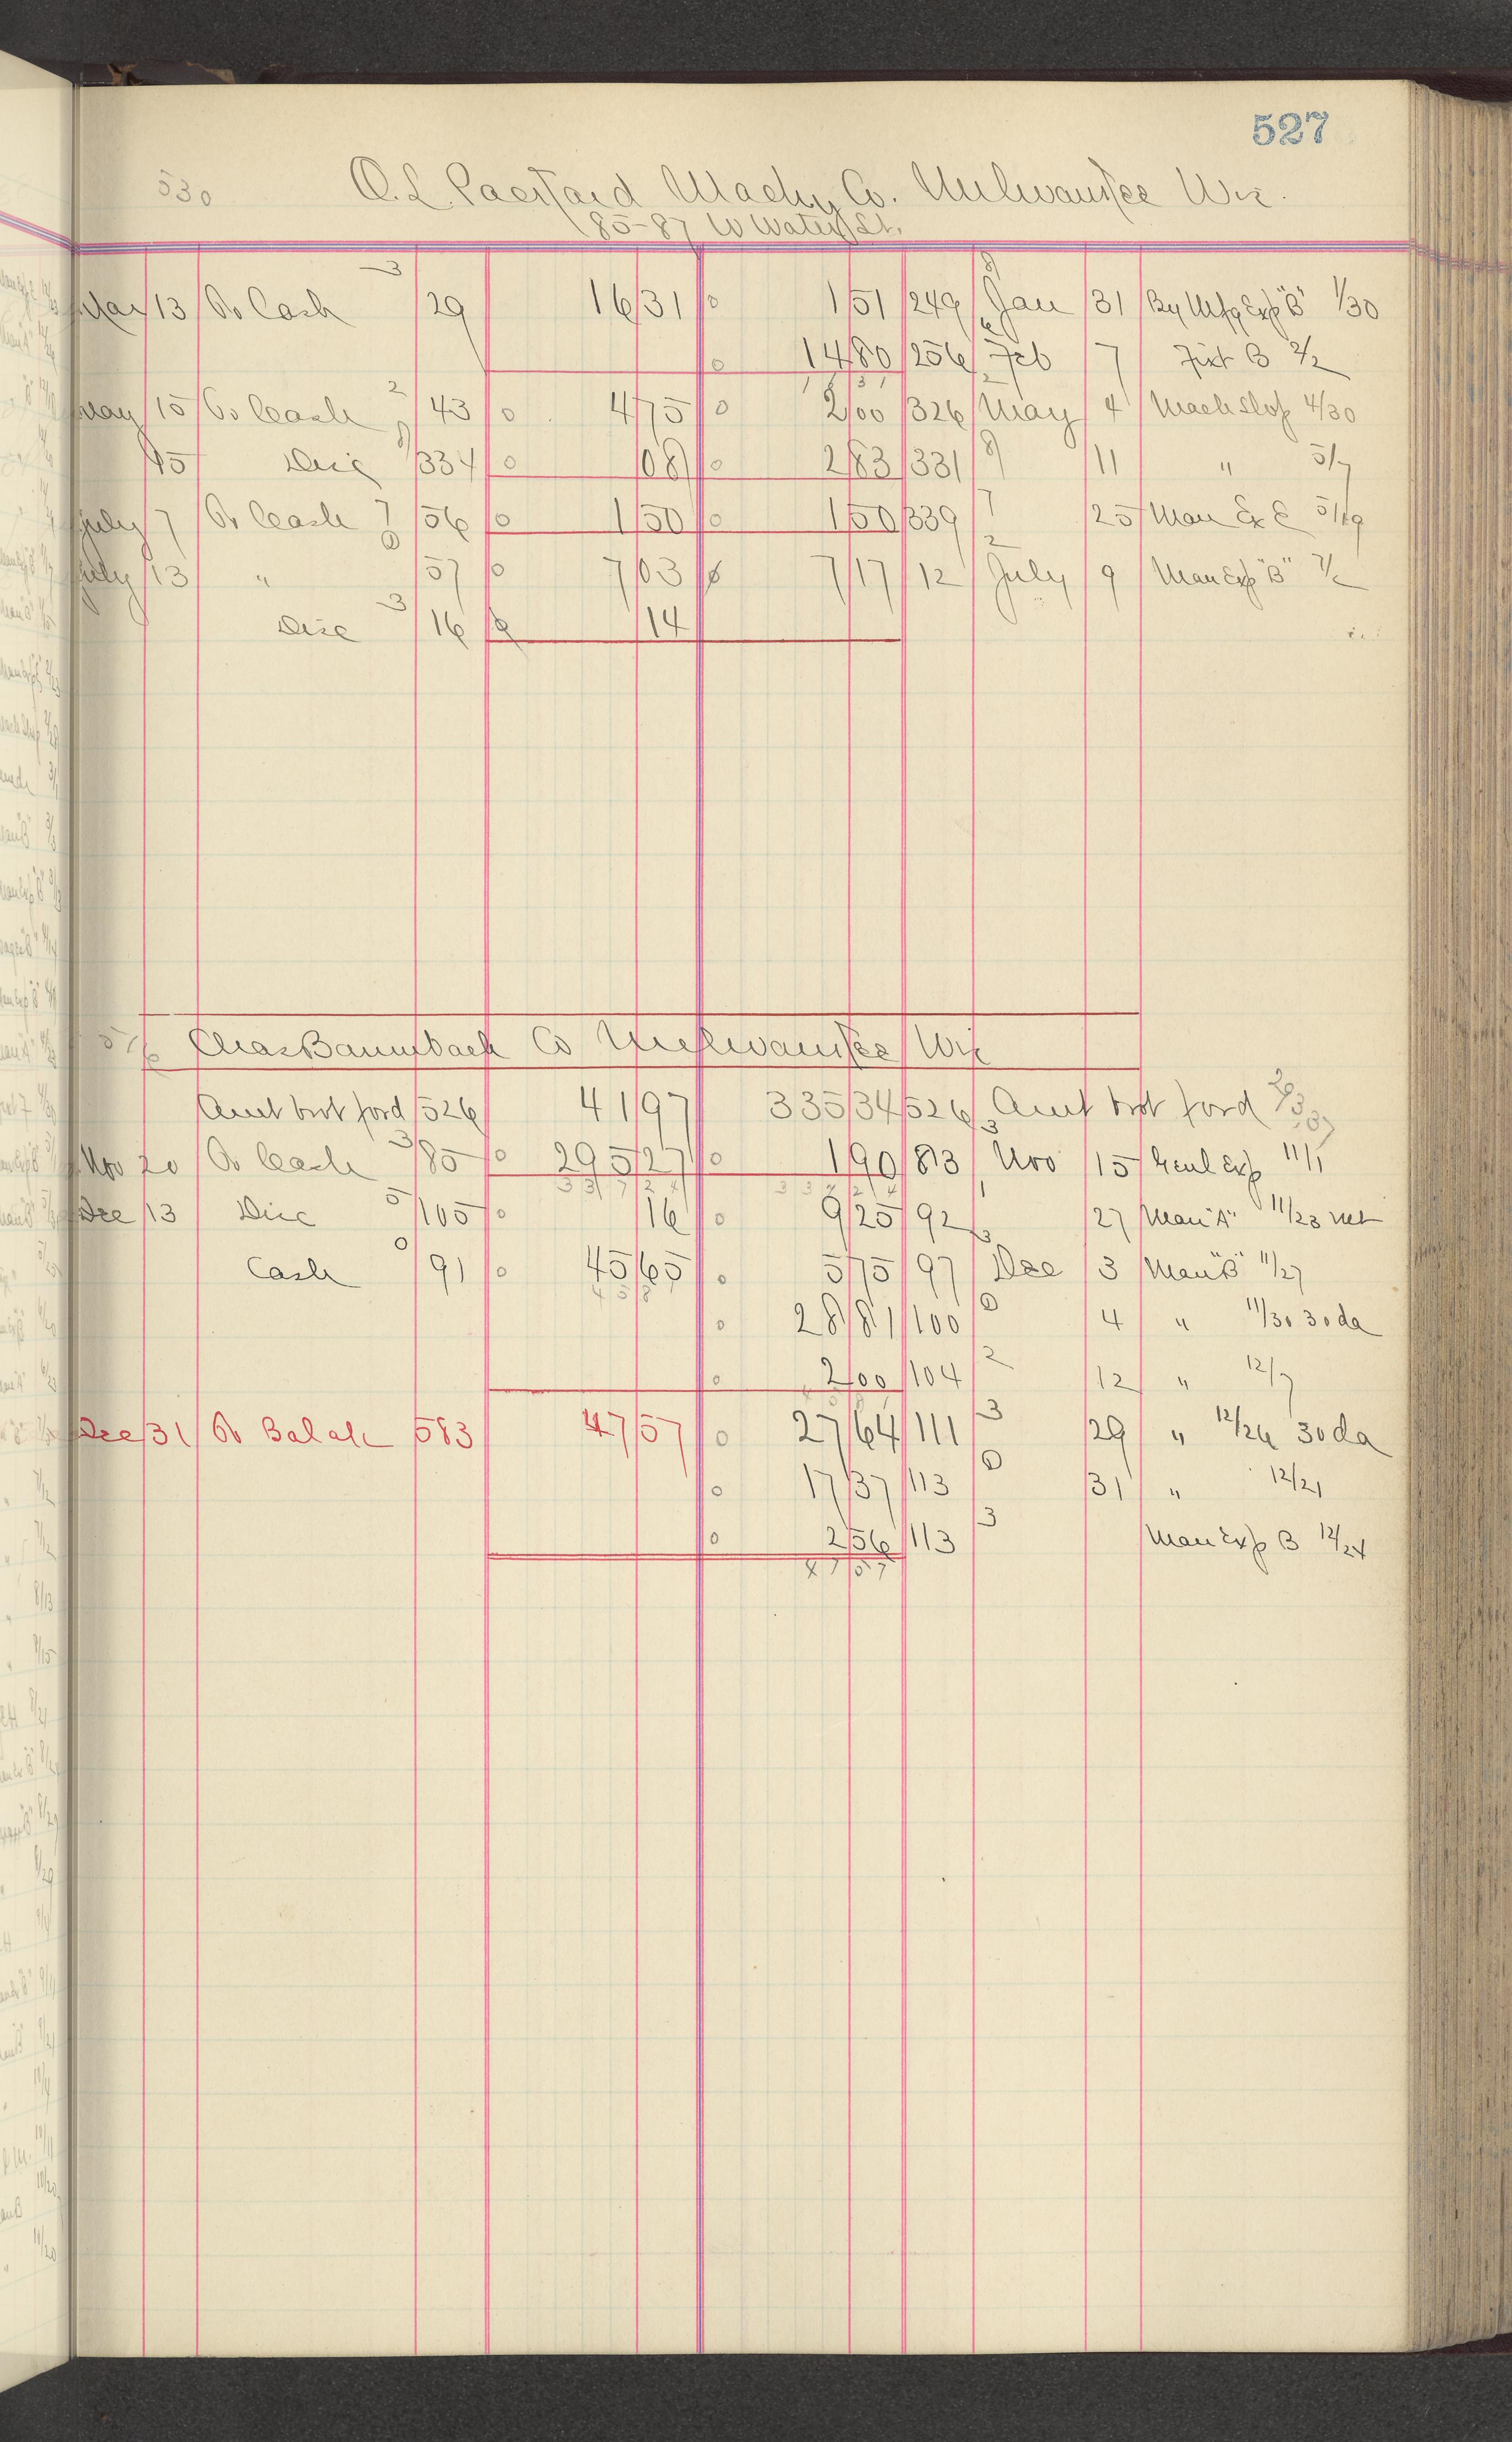 527
530 O. L. Packard Machy Co. Milwaukee Wis.
185-87 W Water St.
Mar 13 To Cash 3/29 16 31 0 1 51 249 8 Jan 31 By Mfg Exp "B" 1/30
0 14 80 256 6 Feb 7 Fixt B 2/2
May 15 To Cash 2/43 0 4 75 0 2 00 326 2 May 4 Mach Shop 4/30
15 Disc 8/334 0 08 0 2 83 331 8 11 " 5/7
July 7 To Cash 7/56 0 1 50 0 1 50 339 7 25 Man Ex E 5/19
July 13 " 0/57 0 7 03 0 7 17 12 2 July 9 Man Exp "B" 7/2
Disc 3/16 0 14
Chas Baumbach Co Milwaukee Wis
Amt brot ford 526 41 97 335 34 526 Amt brot ford
Nov 20 To Cash 3/85 0 295 27 0 1 90 83 3 Nov 15 Genl Exp 11/1
337 24 337 24
Dec 13 Disc 5/105 0 16 0 9 25 92 27 Man "A" 11/23 net
Cash 0/91 0 45 65 0 5 75 97 3 Dec 3 Man "B" 11/27
45 81
0 28 81 100 0 4 " 11/30 30 da
0 2 00 104 2 12 " 12/7
Dec 31 To Balance 583 47 57 0 27 64 111 3 29 " 12/26 30 da
0 17 37 113 0 31 " 12/21
0 2 56 113 3 Man Exp B 12/24
47 57